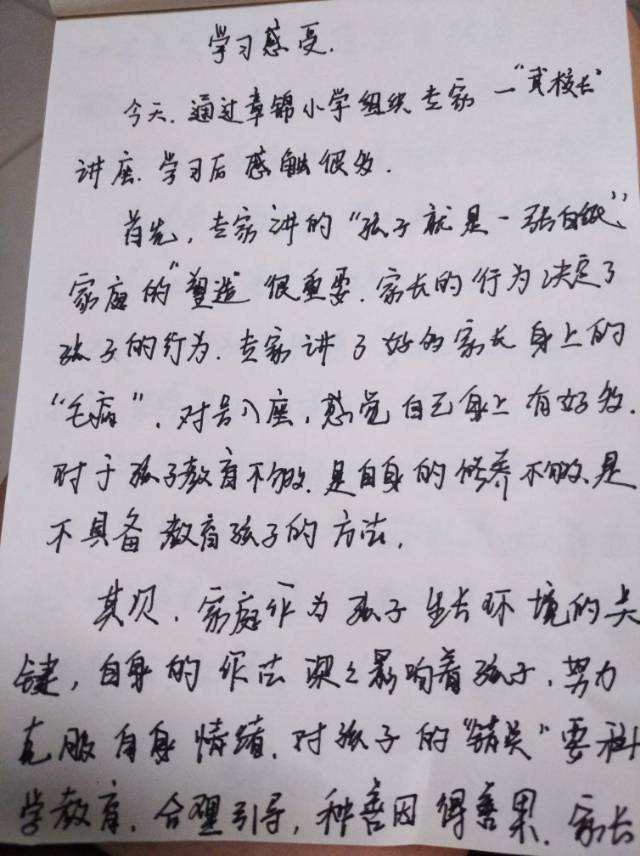 学习感受.
今天.通过章锦小学组织专家一"武校长"
讲座.学习后感触很多.
首先,专家讲的"孩子就是一张白纸",
家庭的"塑造"很重要.家长的行为决定了
孩子的行为.专家讲了好的家长身上的
"毛病",对号入座,感觉自己身上有好多.
对于孩子教育不够.是自身的修养不够.是
不具备教育孩子的方法.
其次,家庭作为孩子生长环境的关
键,自身的作法深之影响着孩子.努力
克服自身情绪.对孩子的"错误"要科
学教育.合理引导,种善因得善果.家长